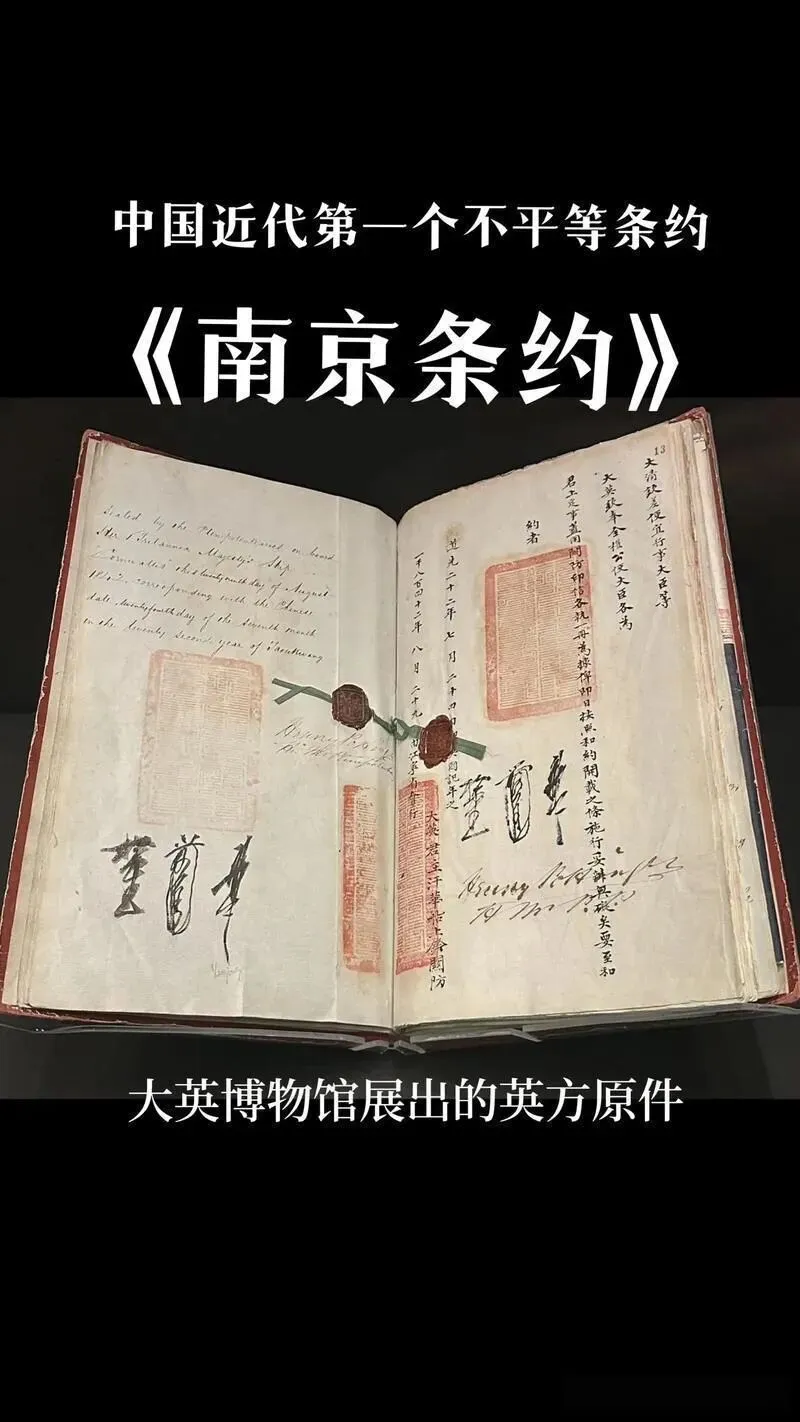 中国近代第一个不平等条约
《南京条约》
Sealed by the Plenipotentiaries on board
Her Britannic Majesty's Ship
Cornwallis this twenty ninth day of August
1842 corresponding with the Chinese
date, twenty fourth day of the seventh month
in the twenty second year of Taoukwang
13
大清欽差便宜行事大臣等
大英欽奉全權公使大臣各為
君上定事蓋用關防印信各執一冊為據俾即日按照和約開載之條施行妥辦無礙矣要至和
約者
道光二十二年七月二十四日即英國記年之
一千八百四十二年八月二十九日由江寧省會行
大英君主汗華船上鈐關防
大英博物馆展出的英方原件